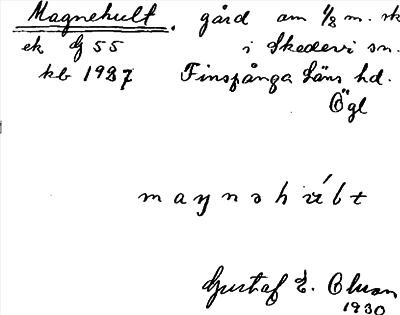 Magnehult. gård om 1/8 m. sk
ek G 55 i Skedevi sn.
kb 1927 Finspånga läns hd.
Ögl
Gustaf E. Olson
1930